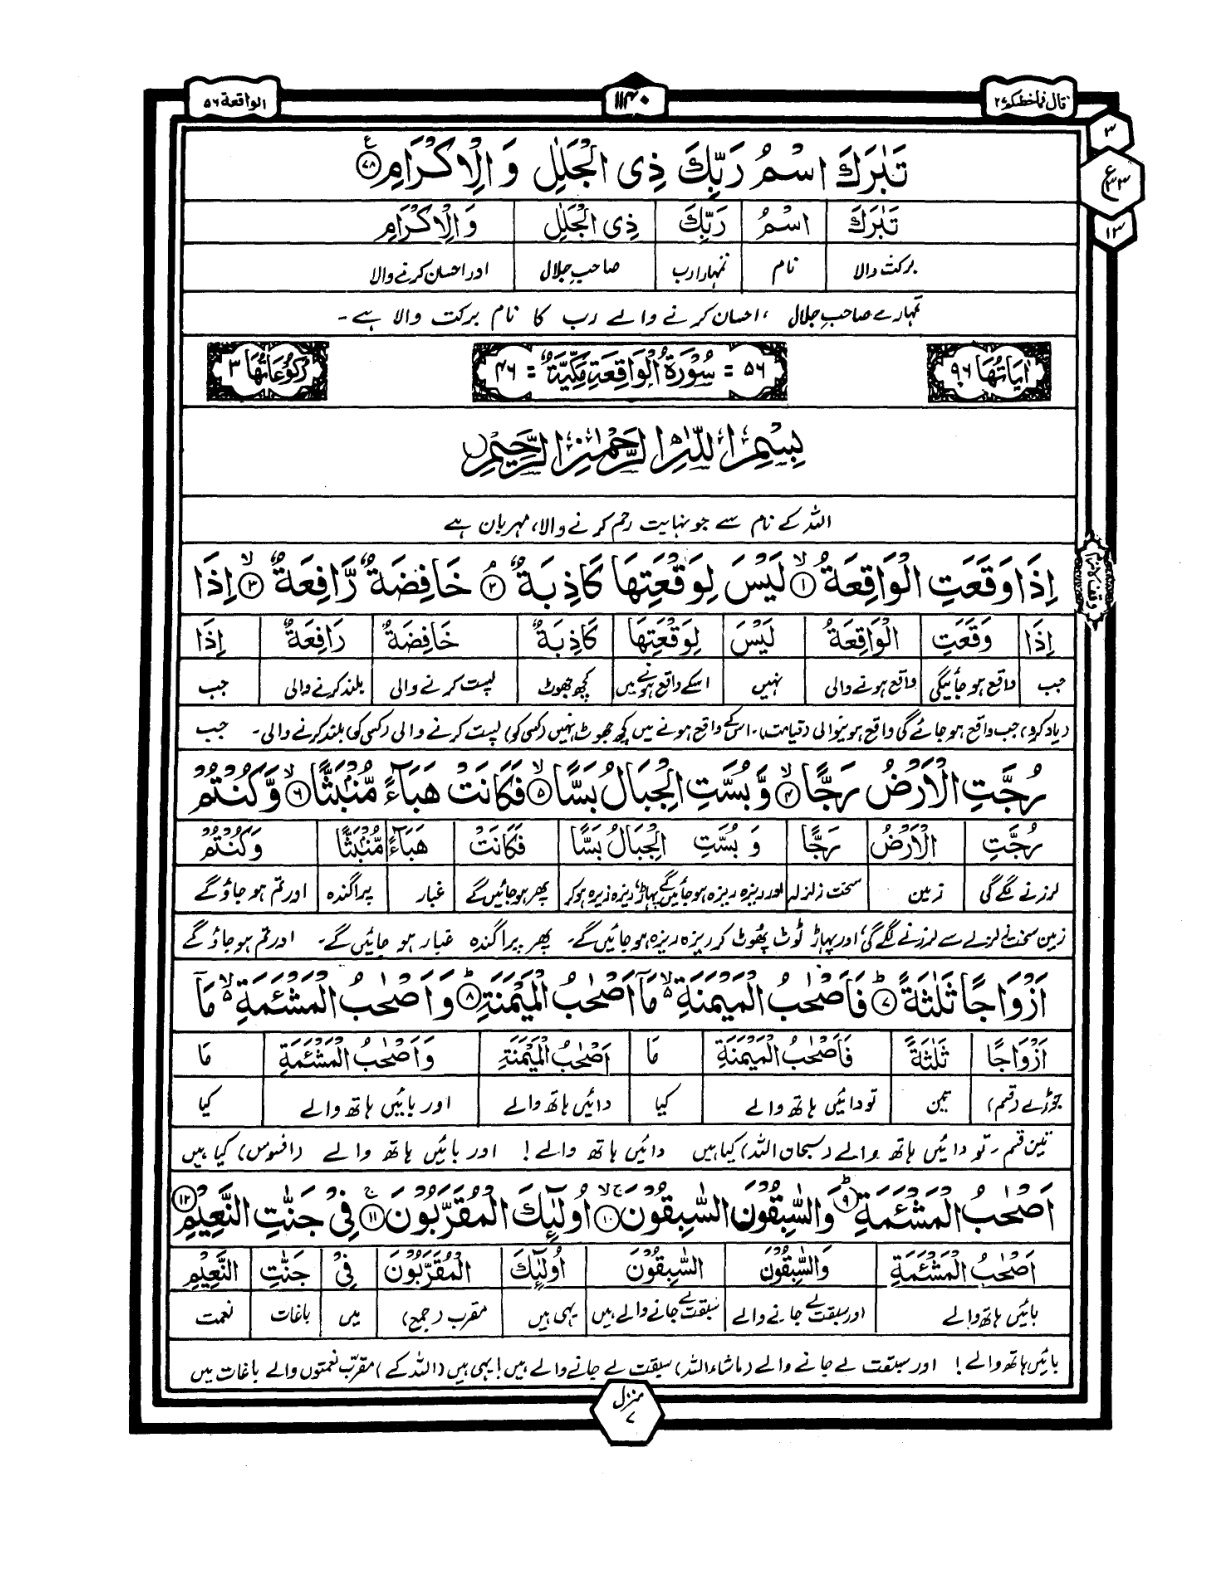 قال فما خطبکم ۲۷
۱۱۴۰
الواقعة ۵۶
تَبٰرَكَ اسْمُ رَبِّكَ ذِی الْجَلٰلِ وَ الْاِكْرَامِ ۷۸
تَبٰرَكَ اسْمُ رَبِّكَ ذِی الْجَلٰلِ وَ الْاِكْرَامِ
برکت والا نام تمہارا رب صاحبِ جلال اور احسان کرنے والا
تمہارے صاحبِ جلال ، احسان کرنے والے رب کا نام برکت والا ہے۔
۳
ع
۳۳
۱۳
اٰیَاتُهَا ۹۶
۵۶ = سُوْرَةُ الْوَاقِعَةِ مَكِّیَّةٌ = ۴۶
رُكُوْعَاتُهَا ۳
بِسْمِ اللّٰهِ الرَّحْمٰنِ الرَّحِیْمِ
اللہ کے نام سے جو نہایت رحم کرنے والا، مہربان ہے
اِذَا وَقَعَتِ الْوَاقِعَةُ ۙ۱ لَیْسَ لِوَقْعَتِهَا كَاذِبَةٌ ۘ۲ خَافِضَةٌ رَّافِعَةٌ ۙ۳ اِذَا
اِذَا وَقَعَتِ الْوَاقِعَةُ لَیْسَ لِوَقْعَتِهَا كَاذِبَةٌ خَافِضَةٌ رَافِعَةٌ اِذَا
جب واقع ہو جائیگی واقع ہونے والی نہیں اسکے واقع ہونے میں کچھ جھوٹ پست کرنے والی بلند کرنے والی جب
(یاد کرو) جب واقع ہو جائے گی واقع ہونیوالی (قیامت)۔ اس کے واقع ہونے میں کچھ جھوٹ نہیں (کسی کو) پست کرنے والی (کسی کو) بلند کرنے والی۔ جب
رُجَّتِ الْاَرْضُ رَجًّا ۙ۴ وَّ بُسَّتِ الْجِبَالُ بَسًّا ۙ۵ فَكَانَتْ هَبَآءً مُّنْۢبَثًّا ۙ۶ وَّ كُنْتُمْ
رُجَّتِ الْاَرْضُ رَجًّا وَ بُسَّتِ الْجِبَالُ بَسًّا فَكَانَتْ هَبَآءً مُّنْۢبَثًّا وَكُنْتُمْ
لرزنے لگے گی زمین سخت زلزلہ اور ریزہ ریزہ ہو جائیں گے پہاڑ ریزہ ریزہ ہو کر پھر ہو جائیں گے غبار پراگندہ اور تم ہو جاؤ گے
زمین سخت زلزلے سے لرزنے لگے گی، اور پہاڑ ٹوٹ پھوٹ کر ریزہ ریزہ ہو جائیں گے۔ پھر پراگندہ غبار ہو جائیں گے۔ اور تم ہو جاؤ گے
اَزْوَاجًا ثَلٰثَةً ؕ۷ فَاَصْحٰبُ الْمَیْمَنَةِ ۙ۬ مَاۤ اَصْحٰبُ الْمَیْمَنَةِ ؕ۸ وَ اَصْحٰبُ الْمَشْـَٔمَةِ ۙ۬ مَاۤ
اَزْوَاجًا ثَلٰثَةً فَاَصْحٰبُ الْمَیْمَنَةِ مَا اَصْحٰبُ الْمَیْمَنَةِ وَ اَصْحٰبُ الْمَشْـَٔمَةِ مَا
جوڑے (قسم) تین تو دائیں ہاتھ والے کیا دائیں ہاتھ والے اور بائیں ہاتھ والے کیا
تین قسم۔ تو دائیں ہاتھ والے (سبحان اللہ) کیا ہیں دائیں ہاتھ والے! اور بائیں ہاتھ والے (افسوس) کیا ہیں
اَصْحٰبُ الْمَشْـَٔمَةِ ؕ۹ وَ السّٰبِقُوْنَ السّٰبِقُوْنَ ۚۙ۱۰ اُولٰٓىِٕكَ الْمُقَرَّبُوْنَ ۚ۱۱ فِیْ جَنّٰتِ النَّعِیْمِ ۱۲
اَصْحٰبُ الْمَشْـَٔمَةِ وَالسّٰبِقُوْنَ السّٰبِقُوْنَ اُولٰٓىِٕكَ الْمُقَرَّبُوْنَ فِیْ جَنّٰتِ النَّعِیْمِ
بائیں ہاتھ والے اور سبقت لے جانے والے سبقت لے جانے والے ہیں یہی ہیں مقرب (جمع) میں باغات نعمت
بائیں ہاتھ والے! اور سبقت لے جانے والے (ماشاء اللہ) سبقت لے جانے والے ہیں! یہی ہیں (اللہ کے) مقرب نعمتوں والے باغات میں
منزل ۷